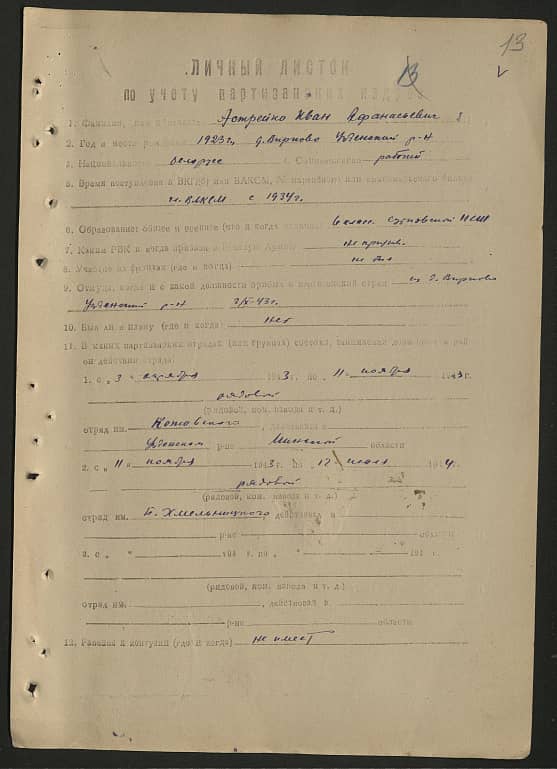 13
ЛИЧНЫЙ ЛИСТОК 13
по учету партизанских кадров
1. Фамилия, имя Астрейко Иван Афанасьевич
2. Год и место рождения 1923 г. д. Вирково Узденский р-н
3. Национальность белорус 4. рабочий
5. Время поступления в ВКП(б) или ВЛКСМ, № партийного или комсомольского билета
чл. ВЛКСМ с 1934 г.
6. Образование: общее и военное (что и когда окончил) 6 клас. НСШ
7. Каким РВК и когда призван в Красную Армию не призыв.
8. Участие на фронтах (где и когда) не был
9. Откуда, когда и с какой должности прибыл в партизанский отряд из д. Вирково
Узденский р-н 3/X-43 г.
10. Был ли в плену (где и когда) нет
11. В каких партизанских отрядах (или бригадах) состоял, занимаемая должность и рай
он действия отряда:
1. с „3 октября 1943 г. по „11" ноября 1943 г.
рядовой
(рядовой, ком. взвода и т. д.)
отряд им. Котовского, действовал в
Узденском р-не Минской области
2. с „11" ноября 1943 г. по „12" июля 1944 г.
рядовой
(рядовой, ком. взвода и т. д.)
отряд им. Б. Хмельницкого, действовал в
р-не области
3. с „ " 194 г. по „ " 194 г.
(рядовой, ком. взвода и т. д.)
отряд им. , действовал в
р-не области
12. Ранения и контузии (где и когда) не имеет